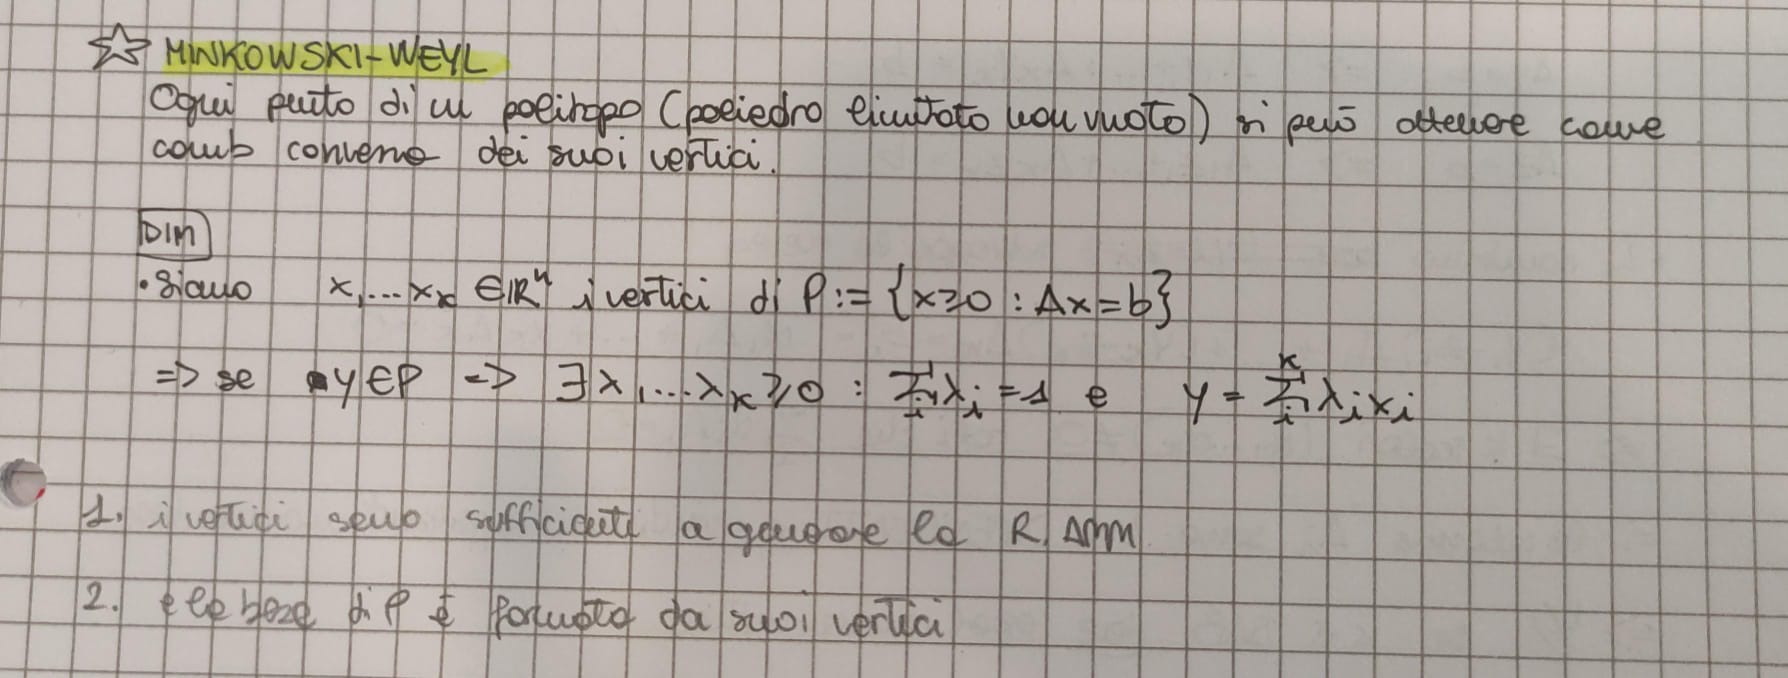 ☆ MINKOWSKI-WEYL
Ogni punto di un politopo (poliedro limitato non vuoto) si può ottenere come
comb convena dei suoi vertici.
DIM
• Siano x₁...xₖ ∈ ℝⁿ i vertici di P := {x≥0 : Ax=b}
=> se y∈P => ∃ λ₁...λₖ ≥0 : ∑ᵢ λᵢ =1 e y = ∑ᵢᵏ λᵢxᵢ
1. i vertici sono sufficienti a generare la R. AMM
2. base di P è formata da suoi vertici